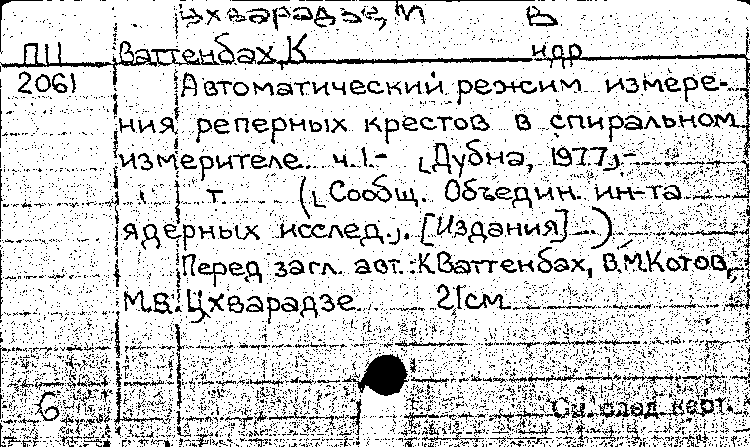 Цхварадзе, М В
ПII Ваттенбах, К ндр
2061 Автоматический режим измере-
ния реперных крестов в спиральном
измерителе. ч.1.- [Дубна, 1977].-
т. ([Сообщ. Объедин. ин-та
ядерных исслед.]. [Издания] ...)
Перед загл. авт.: К.Ваттенбах, В.М.Котов,
М.В.Цхварадзе 21см
6 См. след. карт.